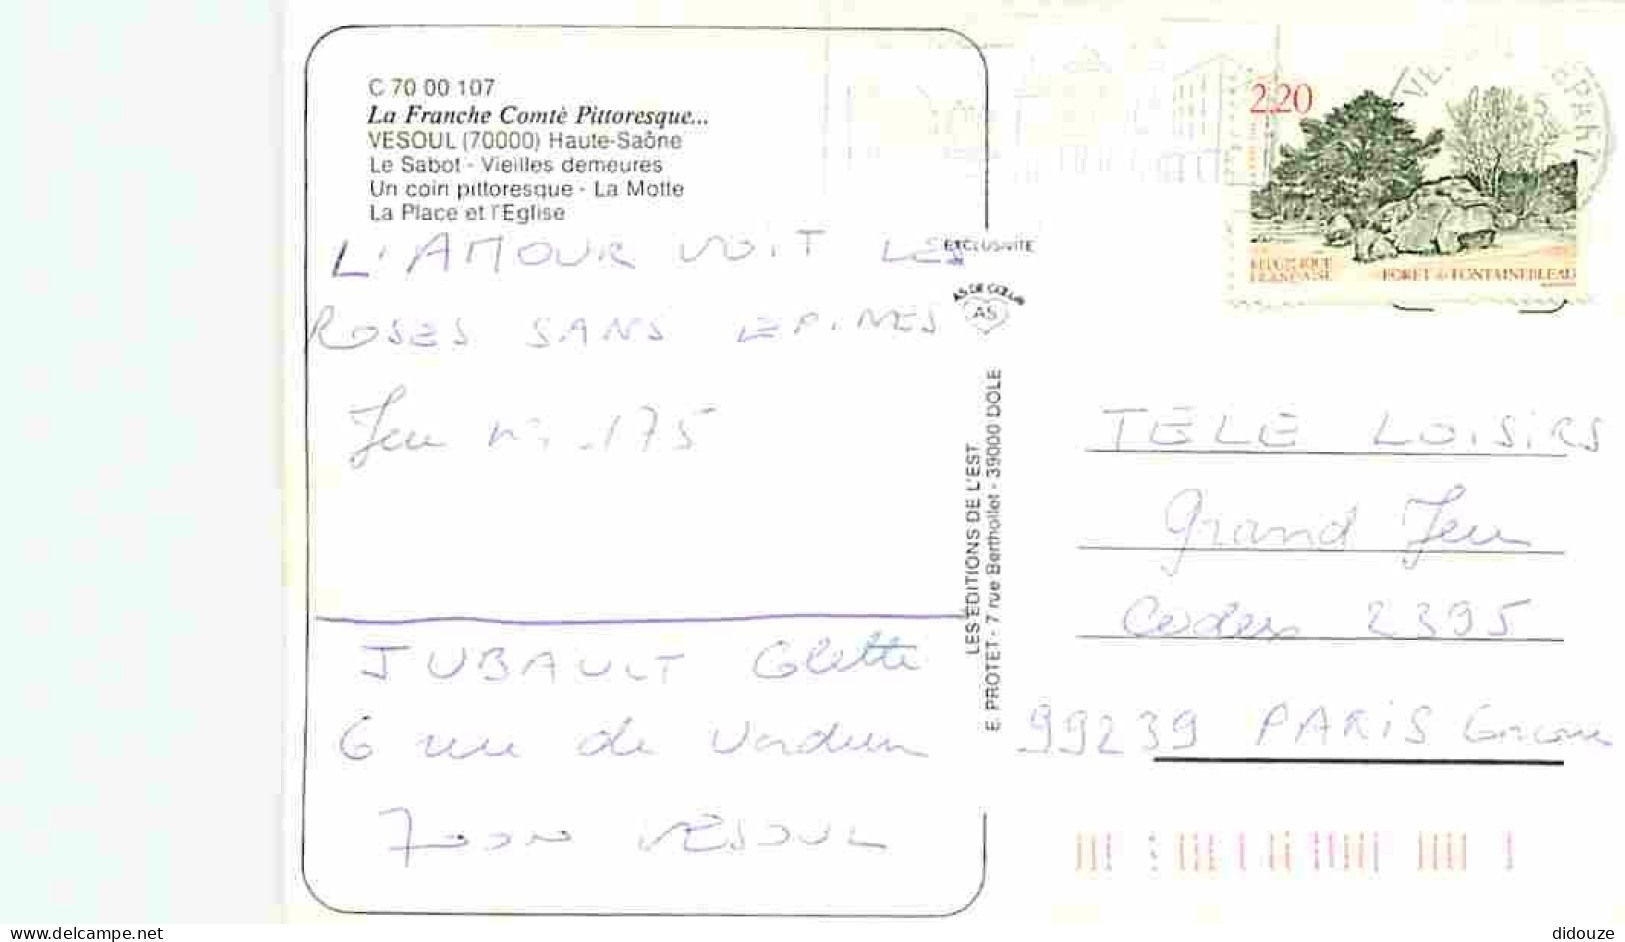 C 70 00 107
La Franche Comté Pittoresque...
VESOUL (70000) Haute-Saône
Le Sabot - Vieilles demeures
Un coin pittoresque - La Motte
La Place et l'Eglise
L'AMOUR VOIT LES
ROSES SANS EPINES
Jeu n° 175
JUBAULT Colette
6 rue de Verdun
70000 VESOUL
EXCLUSIVITÉ
AS DE CŒUR
AS
LES ÉDITIONS DE L'EST
E. PROTET - 7 rue Berthollet - 39000 DOLE
2,20
REPUBLIQUE
FRANCAISE
FORET de FONTAINEBLEAU
TELE LOISIRS
Grand Jeu
Cedex 2395
99239 PARIS
www.delcampe.net
didouze